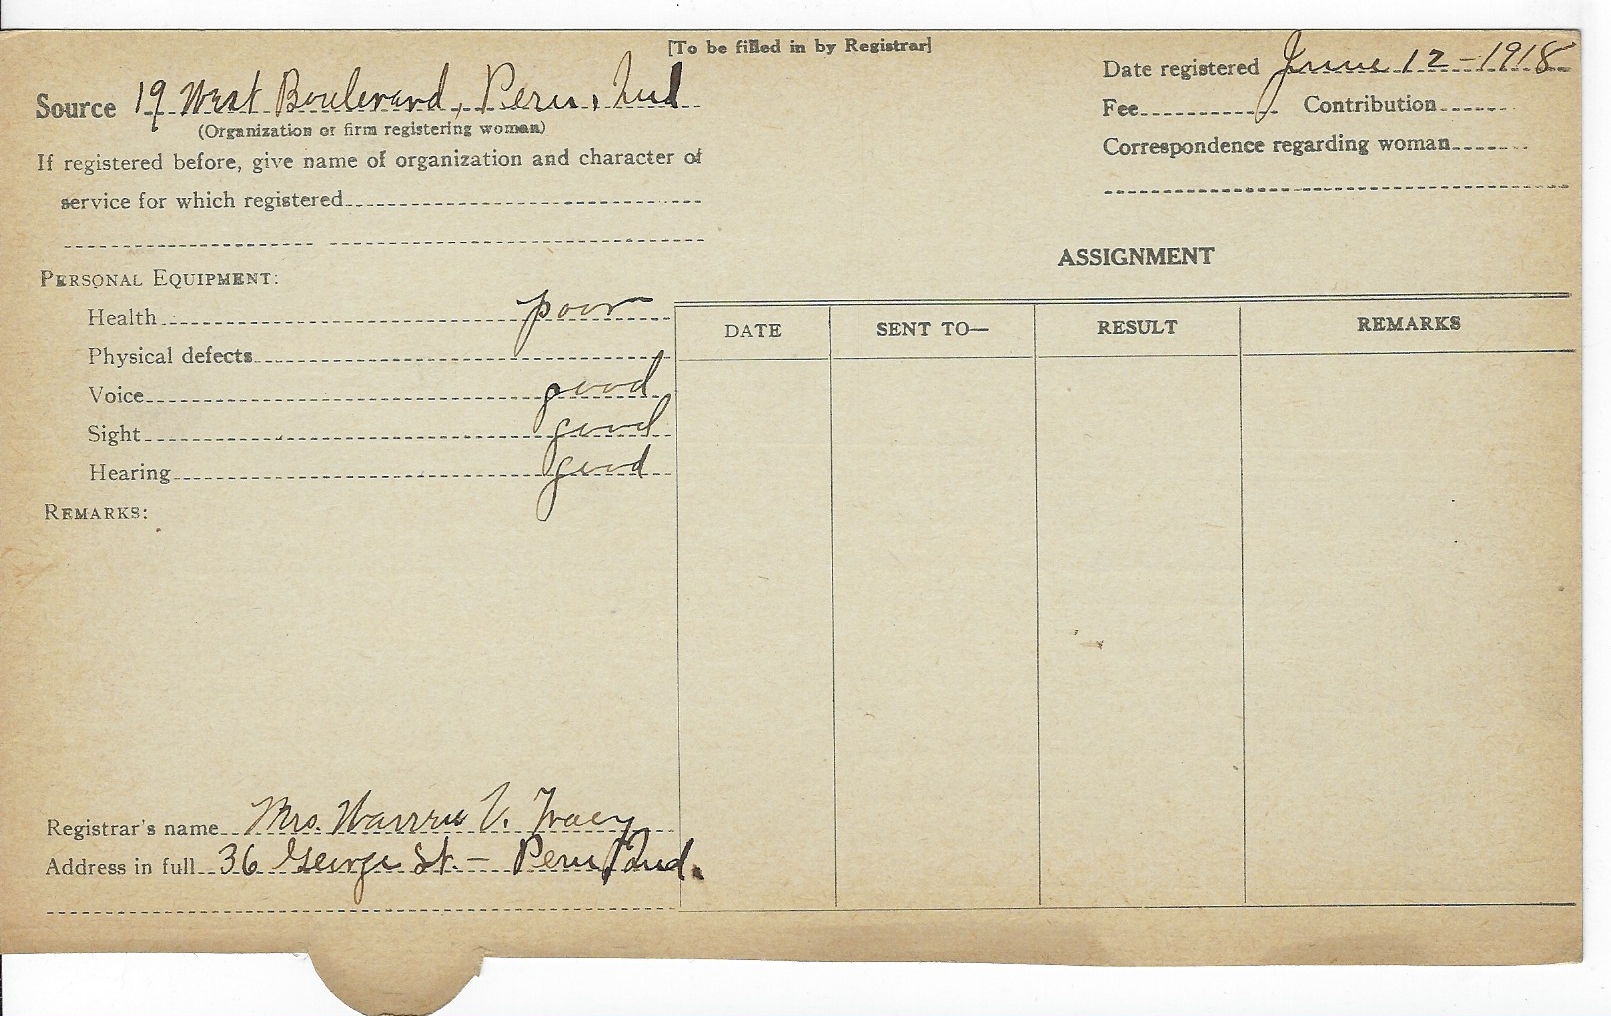 [To be filled in by Registrar]
Source 19 West Boulevard, Peru, Ind
(Organization or firm registering woman)
If registered before, give name of organization and character of
service for which registered
Date registered June 12-1918
Fee Contribution
Correspondence regarding woman
PERSONAL EQUIPMENT:
Health poor
Physical defects
Voice good
Sight good
Hearing good
REMARKS:
ASSIGNMENT
DATE SENT TO— RESULT REMARKS
Registrar's name Mrs. Warren V. Tracy
Address in full 36 George St. — Peru, Ind.